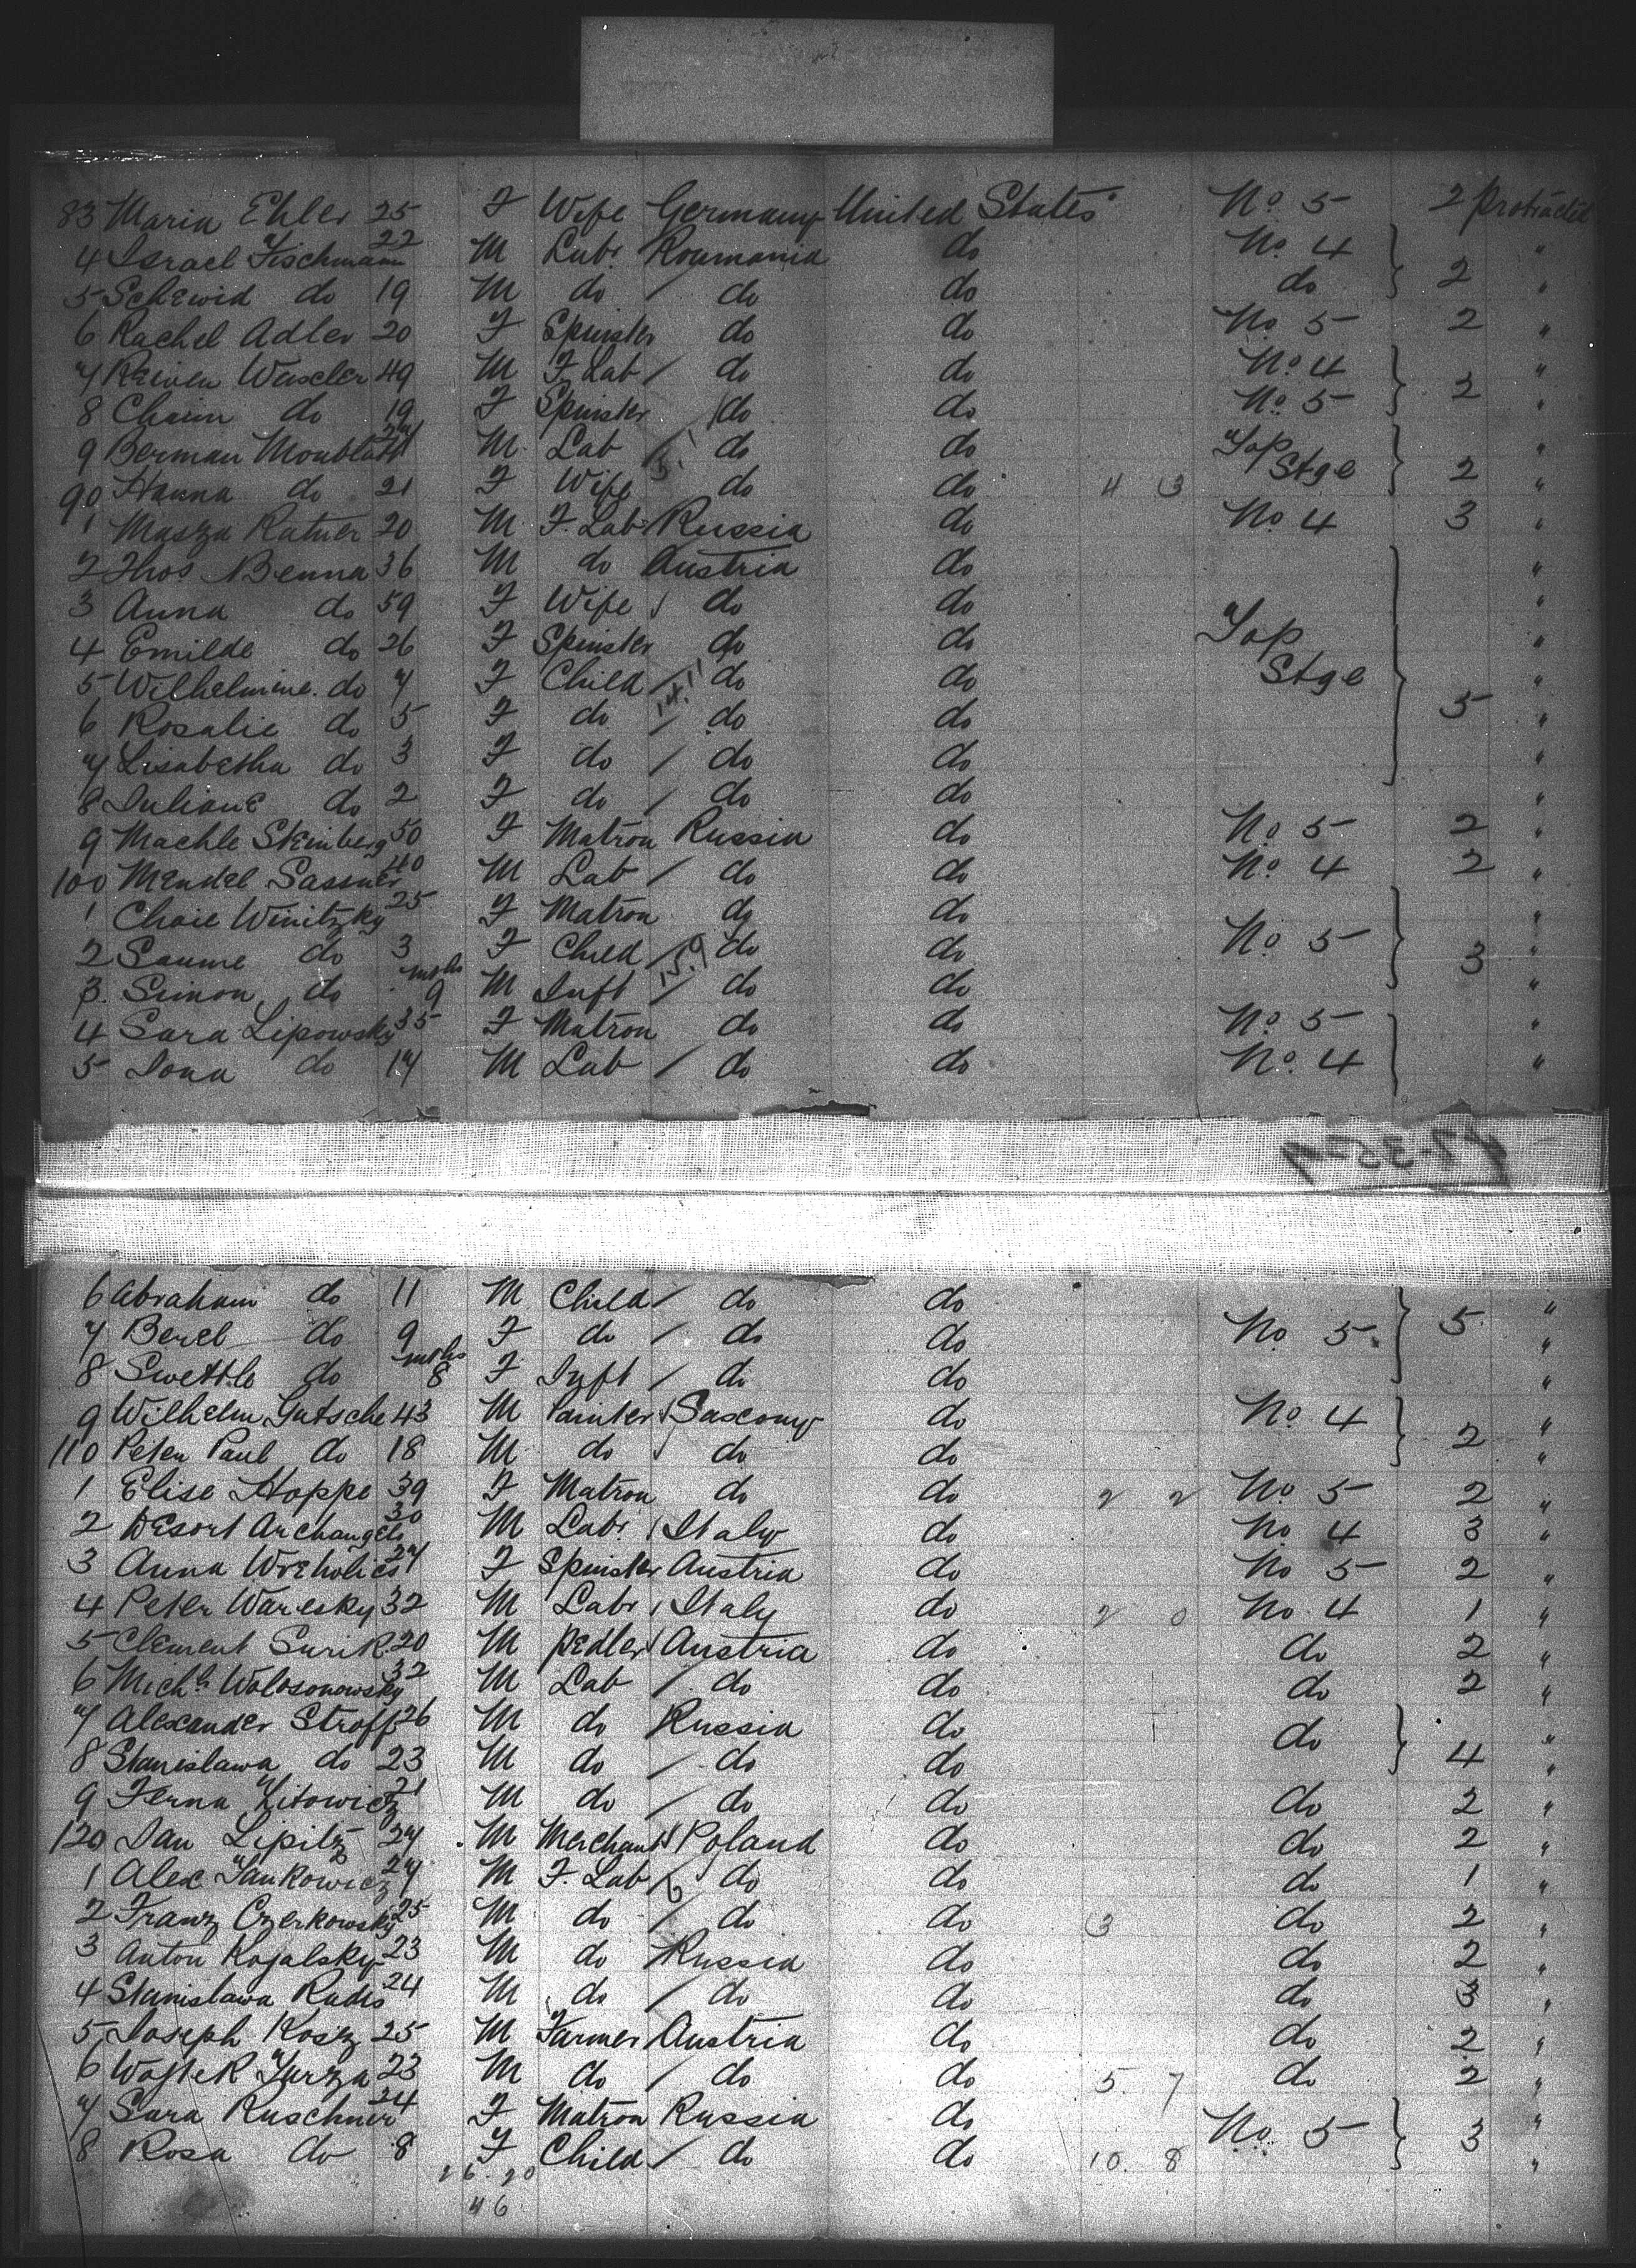 83 Maria Ehler 25 F Wife Germany United States No. 5 2 Protracted
4 Israel Fischmann 22 M Labr. Roumania do No. 4 "
5 Schewid do 19 M do / do do do 2 "
6 Rachel Adler 20 F Spinster do do No 5 2 "
7 Reiven Wascler 49 M F. Lab / do do No. 4 2 "
8 Chaim do 19 F Spinster do do No. 5 "
9 Berman 24 M. Lab do do Top "
90 Hanna do 21 F Wife do do 4 3 Stge 2 "
1 Masza Ratner 20 M F. Lab Russia do No 4 3 "
2 Benna 36 M do Austria do "
3 Anna do 59 F Wife / do do "
4 Emilde do 26 F Spinster do do Top "
5 Wilhelmine. do 7 F Child / do do Stge "
6 Rosalie do 5 F do / do do 5 "
7 Lisabetha do 3 F do / do do "
8 Juliane do 2 F do / do do "
9 Machle Steinberg 50 F Matron Russia do No. 5 2 "
100 Mendel Sassner 40 M Lab / do do No. 4 2 "
1 Chaie Winitzky 25 F Matron do do "
2 Saume do 3 F Child / do do No. 5 3 "
3. Simon do mths 9 M Inft / do do "
4 Sara Lipowsky 35 F Matron do do No. 5 "
5 Jona do 17 M Lab / do do No. 4 "
47-35-9
6 Abraham do 11 M Child / do do "
7 Berel do 9 F do / do do No 5. 5. "
8 Swettle do mths 8 F Inft / do do "
9 Wilhelm Gutsche 43 M Painter / Saxcony do No. 4 "
110 Peter Paul do 18 M do / do do 2 "
1 Elise Hoppe 39 F Matron do do 2 2 No. 5 2 "
2 Desort Archangelo 30 M Labr. / Italy do No 4 3 "
3 Anna 27 F Spinster Austria do No 5 2 "
4 Peter Waresky 32 M Labr / Italy do 2 0 No. 4 1 "
5 Clement Surik. 20 M Pedler / Austria do do 2 "
6 Michl. Wolosonowsky 32 M Lab / do do do 2 "
7 Alexander Stroff 26 M do Russia do do "
8 Stanislawa do 23 M do / do do 4 "
9 Ferna Zitowicz 21 M do / do do do 2 "
120 Jan Lipitz 27 M Merchant / Poland do do 2 "
1 Alex Yankowicz 27 M F. Lab / do do do 1 "
2 Franz Czerkowsky 25 M do / do do 3 do 2 "
3 Anton Kojalsky 23 M do Russia do do 2 "
4 Stanislawa Rudis 24 M do / do do do 3 "
5 Joseph Kosz 25 M Farmer Austria do do 2 "
6 Wojtek Jurza 23 M do / do do 5. 7 do 2 "
7 Sara Ruschner 24 F Matron Russia do No. 5 3 "
8 Rosa do 8 F Child / do do 10. 8 "
26. 20
46